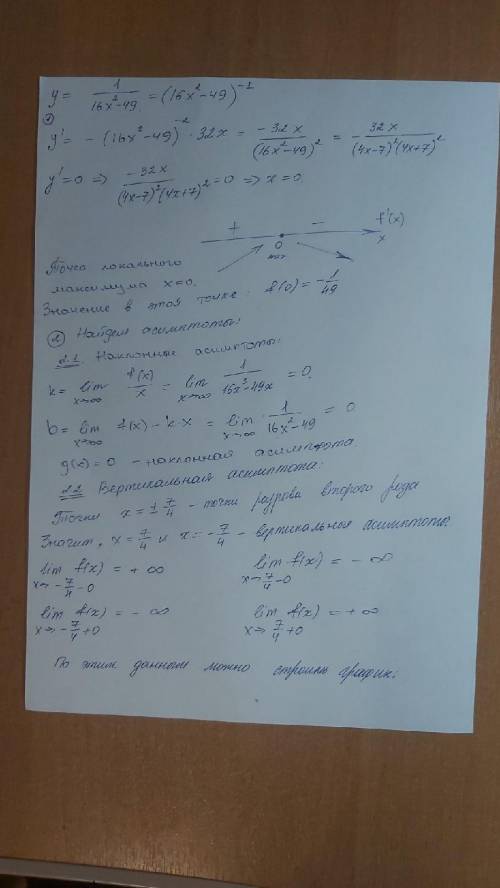 y = 1/(16x²-49) = (16x²-49)⁻¹
①
y' = -(16x²-49)⁻² · 32x = -32x/(16x²-49)² = - 32x/((4x-7)²(4x+7)²)
y'=0 => -32x/((4x-7)²(4x+7)²) = 0 => x=0.
+ - f'(x)
0 x
max
Точка локального
максимума x=0.
Значение в этой точке: f(0) = -1/49
② Найдем асимптоты:
2.1 Наклонные асимптоты:
k = lim x→∞ f(x)/x = lim x→∞ 1/(16x³-49x) = 0.
b = lim x→∞ f(x) - k·x = lim x→∞ 1/(16x²-49) = 0
g(x) = 0 - наклонная асимптота
2.2 Вертикальная асимптота:
Точки x = ± 7/4 - точки разрыва второго рода
Значит, x = 7/4 и x = -7/4 - вертикальная асимптоты:
lim x→-7/4-0 f(x) = +∞ lim x→7/4-0 f(x) = -∞
lim x→-7/4+0 f(x) = -∞ lim x→7/4+0 f(x) = +∞
По этим данным можно строить график: